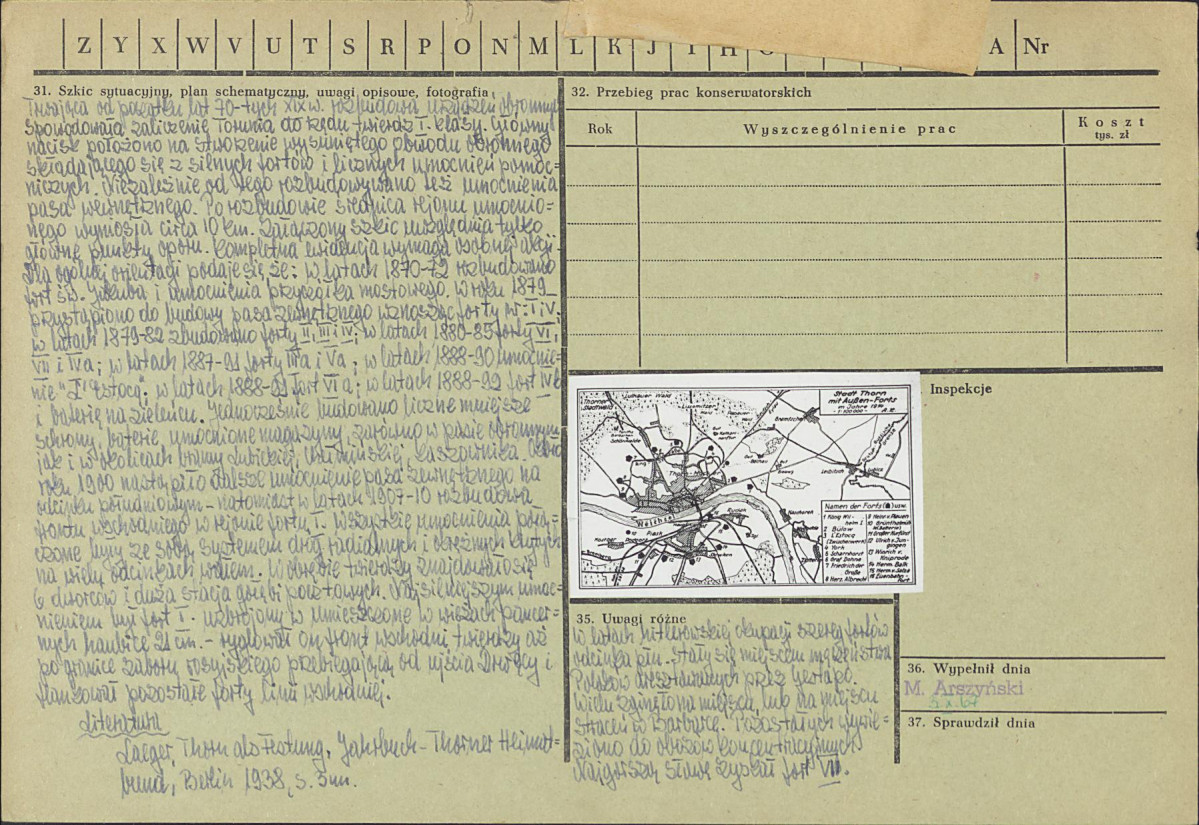 Z Y X W V U T S R P O N M L K J I H A Nr
31. Szkic sytuacyjny, plan schematyczny, uwagi opisowe, fotografia
Trwająca od początku lat 70-tych XIX w. rozbudowa urządzeń obronnych
spowodowała zaliczenie Torunia do rzędu twierdz I. klasy. Główny
nacisk położono na stworzenie wysuniętego obwodu obronnego
składającego się z silnych fortów i licznych umocnień pomoc=
niczych. Niezależnie od tego rozbudowywano też umocnienia
pasa wewnętrznego. Po rozbudowie średnica rejonu umocnio=
nego wynosiła circa 10 km. Załączony szkic uwzględnia tylko
główne punkty oporu. Kompletna ewidencja wymaga osobnej akcji.
Dla ogólnej orientacji podaje się że: w latach 1870-72 rozbudowano
fort św. Jakuba i umocnienia przyczółka mostowego. W roku 1879
przystąpiono do budowy pasa zewnętrznego wznosząc forty nr: I i V;
w latach 1879-82 zbudowano forty II, III i IV; w latach 1880-85 forty VI,
VII i IVa; w latach 1887-91 forty IIIa i Va; w latach 1888-90 umocnie=
nie "L'Estocq"; w latach 1888-93 fort VIa; w latach 1888-92 fort IVb
i baterię na zieleńcu. Jednocześnie budowano liczne mniejsze
schrony, baterie, umocnione magazyny, zarówno w pasie obronnym
jak i w okolicach bramy Lubickiej, Chełmińskiej, Kaszownika. Około
roku 1900 nastąpiło dalsze umocnienie pasa zewnętrznego na
odcinku południowym - natomiast w latach 1907-10 rozbudowa
frontu wschodniego w rejonie fortu I. Wszystkie umocnienia połą=
czone były ze sobą systemem dróg radialnych i okrężnych krytych
na wielu odcinkach wałem. W obrębie twierdzy znajdowało się
6 dworców i duża stacja gołębi pocztowych. Najsilniejszym umoc=
nieniem był fort I. uzbrojony w umieszczone w wieżach pancer=
nych haubice 21 cm. - ryglował on front wschodni twierdzy aż
po granicę zaboru rosyjskiego przebiegającą od ujścia Drwęcy i
flankował pozostałe forty linii wschodniej.
Literatura
Laeger, Thorn als Festung, Jahrbuch - Thorner Heimat=
bund, Berlin 1938, s. 3 nn.
32. Przebieg prac konserwatorskich
Rok Wyszczególnienie prac Koszt
tys. zł
Stadt Thorn
mit Außen-Forts
im Jahre 1914
Weichsel
Namen der Forts usw.
1 König Wil-
helm I.
2 Bülow
3 L'Estocq
(Zwischenwerk)
4 York
5 Scharnhorst
6 Graf Dohna
7 Friedrich der
Große
8 Herz. Albrecht
9 Heinr. v. Plauen
10 Grünthalmühle
11 Großer Kurfürst
12 Ulrich v. Jun-
gingen
13 Winrich v.
Kniprode
14 Herm. Balk
15 Herm. v. Salza
16 Eisenbahn-
Fort
Inspekcje
35. Uwagi różne
W latach hitlerowskiej okupacji szereg fortów
odcinka płn. stały się miejscem męczeństwa
Polaków aresztowanych przez Gestapo.
Wielu zginęło na miejscu, lub na miejscu
straceń w Barbarce. Pozostałych wywie=
ziono do obozów koncentracyjnych
Najgorszą sławę zyskał fort VII.
36. Wypełnił dnia
M. Arszyński
37. Sprawdził dnia